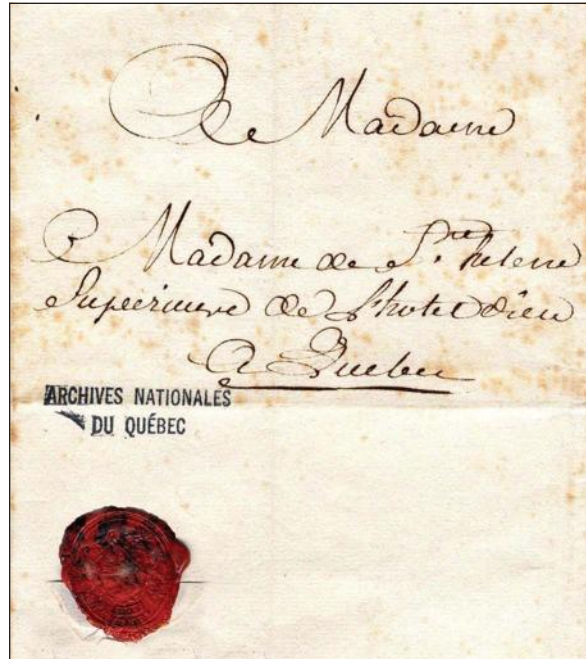 A Madame
Madame de Ste. helene
Superieure de L'hotel dieu
A Quebec
ARCHIVES NATIONALES
DU QUÉBEC